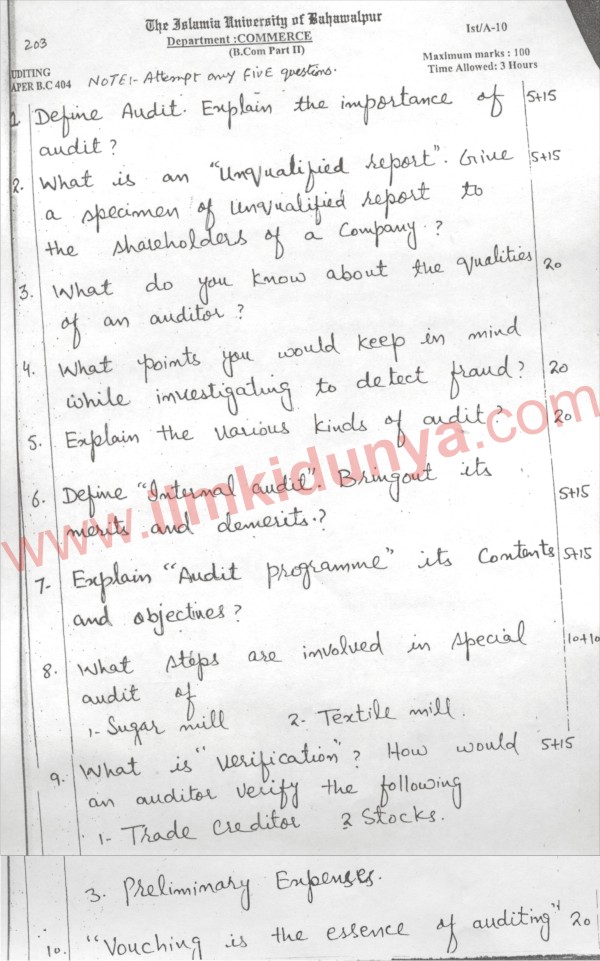 The Islamia University of Bahawalpur
203
Department :COMMERCE
Ist/A-10
(B.Com Part II)
UDITING
Maximum marks : 100
APER B.C 404
NOTE:- Attempt any FIVE questions.
Time Allowed: 3 Hours
1. Define Audit. Explain the importance of 5+15
audit?
2. What is an "Unqualified report". Give 5+15
a specimen of unqualified report to
the shareholders of a Company.?
3. What do you know about the qualities 20
of an auditor?
4. What points you would keep in mind
while investigating to detect fraud? 20
5. Explain the various kinds of audit? 20
6. Define "Internal audit". Bringout its
merits and demerits.? 5+15
7. Explain "Audit programme" its Contents 5+15
and objectives?
8. What steps are involved in special 10+10
audit of
1- Sugar mill 2- Textile mill.
9. What is "verification"? How would 5+15
an auditor verify the following
1- Trade Creditor 2 Stocks.
3. Preliminary Expenses.
10. "Vouching is the essence of auditing" 20
www.ilmkidunya.com